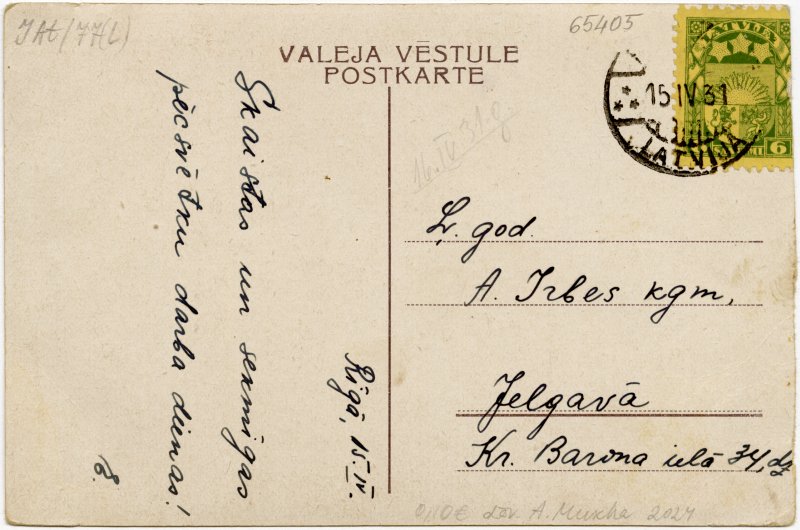 JAL/77(L)
65405
VALEJA VĒSTULE
POSTKARTE
LATVIJA
15 IV 31
LATVIJA
6
16. IV 31g
Skaistas un
pēcsvētku darba dienas!
E.
Rīgā, 15. IV.
Ļ. god.
A. Irbes kgm,
Jelgavā
Kr. Barona ielā 34, dz
0,10€ dāv. A. Muxha 2024